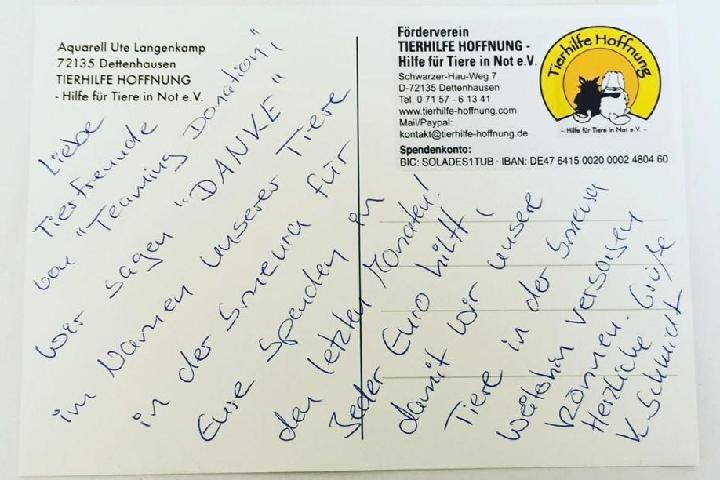 Aquarell Ute Langenkamp
72135 Dettenhausen
TIERHILFE HOFFNUNG
- Hilfe für Tiere in Not e.V.
Förderverein
TIERHILFE HOFFNUNG -
Hilfe für Tiere in Not e.V.
Schwarzer-Hau-Weg 7
D-72135 Dettenhausen
Tel. 0 71 57 - 6 13 41
www.tierhilfe-hoffnung.com
Mail/Paypal:
kontakt@tierhilfe-hoffnung.de
Spendenkonto:
BIC: SOLADES1TUB · IBAN: DE47 6415 0020 0002 4804 60
Tierhilfe Hoffnung
- Hilfe für Tiere in Not e.V. -
Liebe
Tierfreunde
von "Teaming Donation",
wir sagen "DANKE"!
im Namen unserer Tiere
in der Smeura für
Eure Spenden in
den letzten Monaten!
Jeder Euro hilft,
damit wir unsere
Tiere in der Smeura
weiterhin versorgen
können.
Herzliche Grüße
K. Schmidt